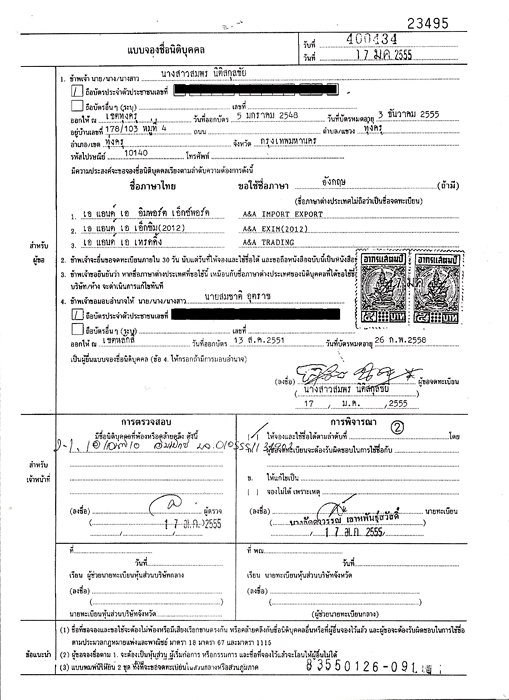 23495
แบบจองชื่อนิติบุคคล
วันที่ 400434
วันที่ 17 มค 2555
1. ข้าพเจ้า นาย/นาง/นางสาว นางสาวสมพร นิติสกุลชัย
[/] ถือบัตรประจำตัวประชาชนเลขที่
ถือบัตรอื่นๆ (ระบุ) เลขที่
ออกให้ ณ เขตทุ่งครุ วันที่ออกบัตร 5 มกราคม 2548 วันที่บัตรหมดอายุ 3 ธันวาคม 2555
อยู่บ้านเลขที่ 178/103 หมู่ที่ 4 ถนน ตำบล/แขวง ทุ่งครุ
อำเภอ/เขต ทุ่งครุ จังหวัด กรุงเทพมหานคร
รหัสไปรษณีย์ 10140 โทรศัพท์
มีความประสงค์จะขอจองชื่อนิติบุคคลเรียงตามลำดับความต้องการดังนี้
ชื่อภาษาไทย ขอใช้ชื่อภาษา อังกฤษ (ถ้ามี)
(ชื่อภาษาต่างประเทศไม่ถือว่าเป็นชื่อจดทะเบียน)
1. เอ แอนด์ เอ อิมพอร์ต เอ็กซ์พอร์ต A&A IMPORT EXPORT
2. เอ แอนด์ เอ เอ็กซิม(2012) A&A EXIM(2012)
3. เอ แอนด์ เอ เทรดดิ้ง A&A TRADING
สำหรับ
ผู้ขอ
2. ข้าพเจ้าจะยื่นขอจดทะเบียนภายใน 30 วัน นับแต่วันที่ให้จองและใช้ชื่อได้ และขอถือหนังสือฉบับนี้เป็นหนังสือ
3. ข้าพเจ้าขอยืนยันว่า หากชื่อภาษาต่างประเทศที่ขอใช้นี้ เหมือนกับชื่อภาษาต่างประเทศของนิติบุคคลที่ได้ขอใช้ชื่อ
บริษัท/ห้าง จะดำเนินการแก้ไขทันที
อากรแสตมป์ อากรแสตมป์
4. ข้าพเจ้าขอมอบอำนาจให้ นาย/นาง/นางสาว นายสมชาติ อุดราช
[/] ถือบัตรประจำตัวประชาชนเลขที่
ถือบัตรอื่นๆ (ระบุ) เลขที่
ออกให้ ณ เขตหลักสี่ วันที่ออกบัตร 13 ส.ค.2551 วันที่บัตรหมดอายุ 26 ก.พ.2558
เป็นผู้ยื่นแบบจองชื่อนิติบุคคล (ข้อ 4. ให้กรอกถ้ามีการมอบอำนาจ)
(ลงชื่อ) ผู้ขอจดทะเบียน
(นางสาวสมพร นิติสกุลชัย)
17 ม.ค. 2555
การตรวจสอบ การพิจารณา 2
มีชื่อนิติบุคคลที่พ้องหรือคล้ายคลึง ดังนี้
ให้จองและใช้ชื่อได้ตามลำดับที่ โดย
ผู้ขอจดทะเบียนจะต้องรับผิดชอบในการใช้ชื่อกับ
สำหรับ
เจ้าหน้าที่
ข. ให้แก้ไขเป็น
( ) จองไม่ได้ เพราะเหตุ
(ลงชื่อ) ผู้ตรวจ (ลงชื่อ) นายทะเบียน
17 ม.ค. 2555 17 ม.ค. 2555
ที่ ที่ พณ.
วันที่ วันที่
เรียน ผู้ช่วยนายทะเบียนหุ้นส่วนบริษัทกลาง เรียน ผู้ช่วยนายทะเบียนหุ้นส่วนบริษัทจังหวัด
(ลงชื่อ) (ลงชื่อ)
นายทะเบียนหุ้นส่วนบริษัทจังหวัด (ผู้ช่วยนายทะเบียนกลาง)
ข้อแนะนำ
(1) ชื่อที่ขอจองและขอใช้จะต้องไม่พ้องหรือมีเสียงเรียกขานตรงกัน หรือคล้ายคลึงกับชื่อนิติบุคคลอื่นหรือที่ผู้อื่นจองไว้แล้ว และผู้จองจะต้องรับผิดชอบในการใช้ชื่อ
ตามประมวลกฎหมายแพ่งและพาณิชย์ มาตรา 18 มาตรา 67 และมาตรา 1115
(2) ผู้ขอจองชื่อตาม 1. จะต้องเป็นหุ้นส่วน ผู้เริ่มก่อการ หรือกรรมการ และชื่อที่จองไว้แล้วจะโอนให้ผู้อื่นไม่ได้
(3) แบบพิมพ์นี้มี 2 ชุด
83550126-091